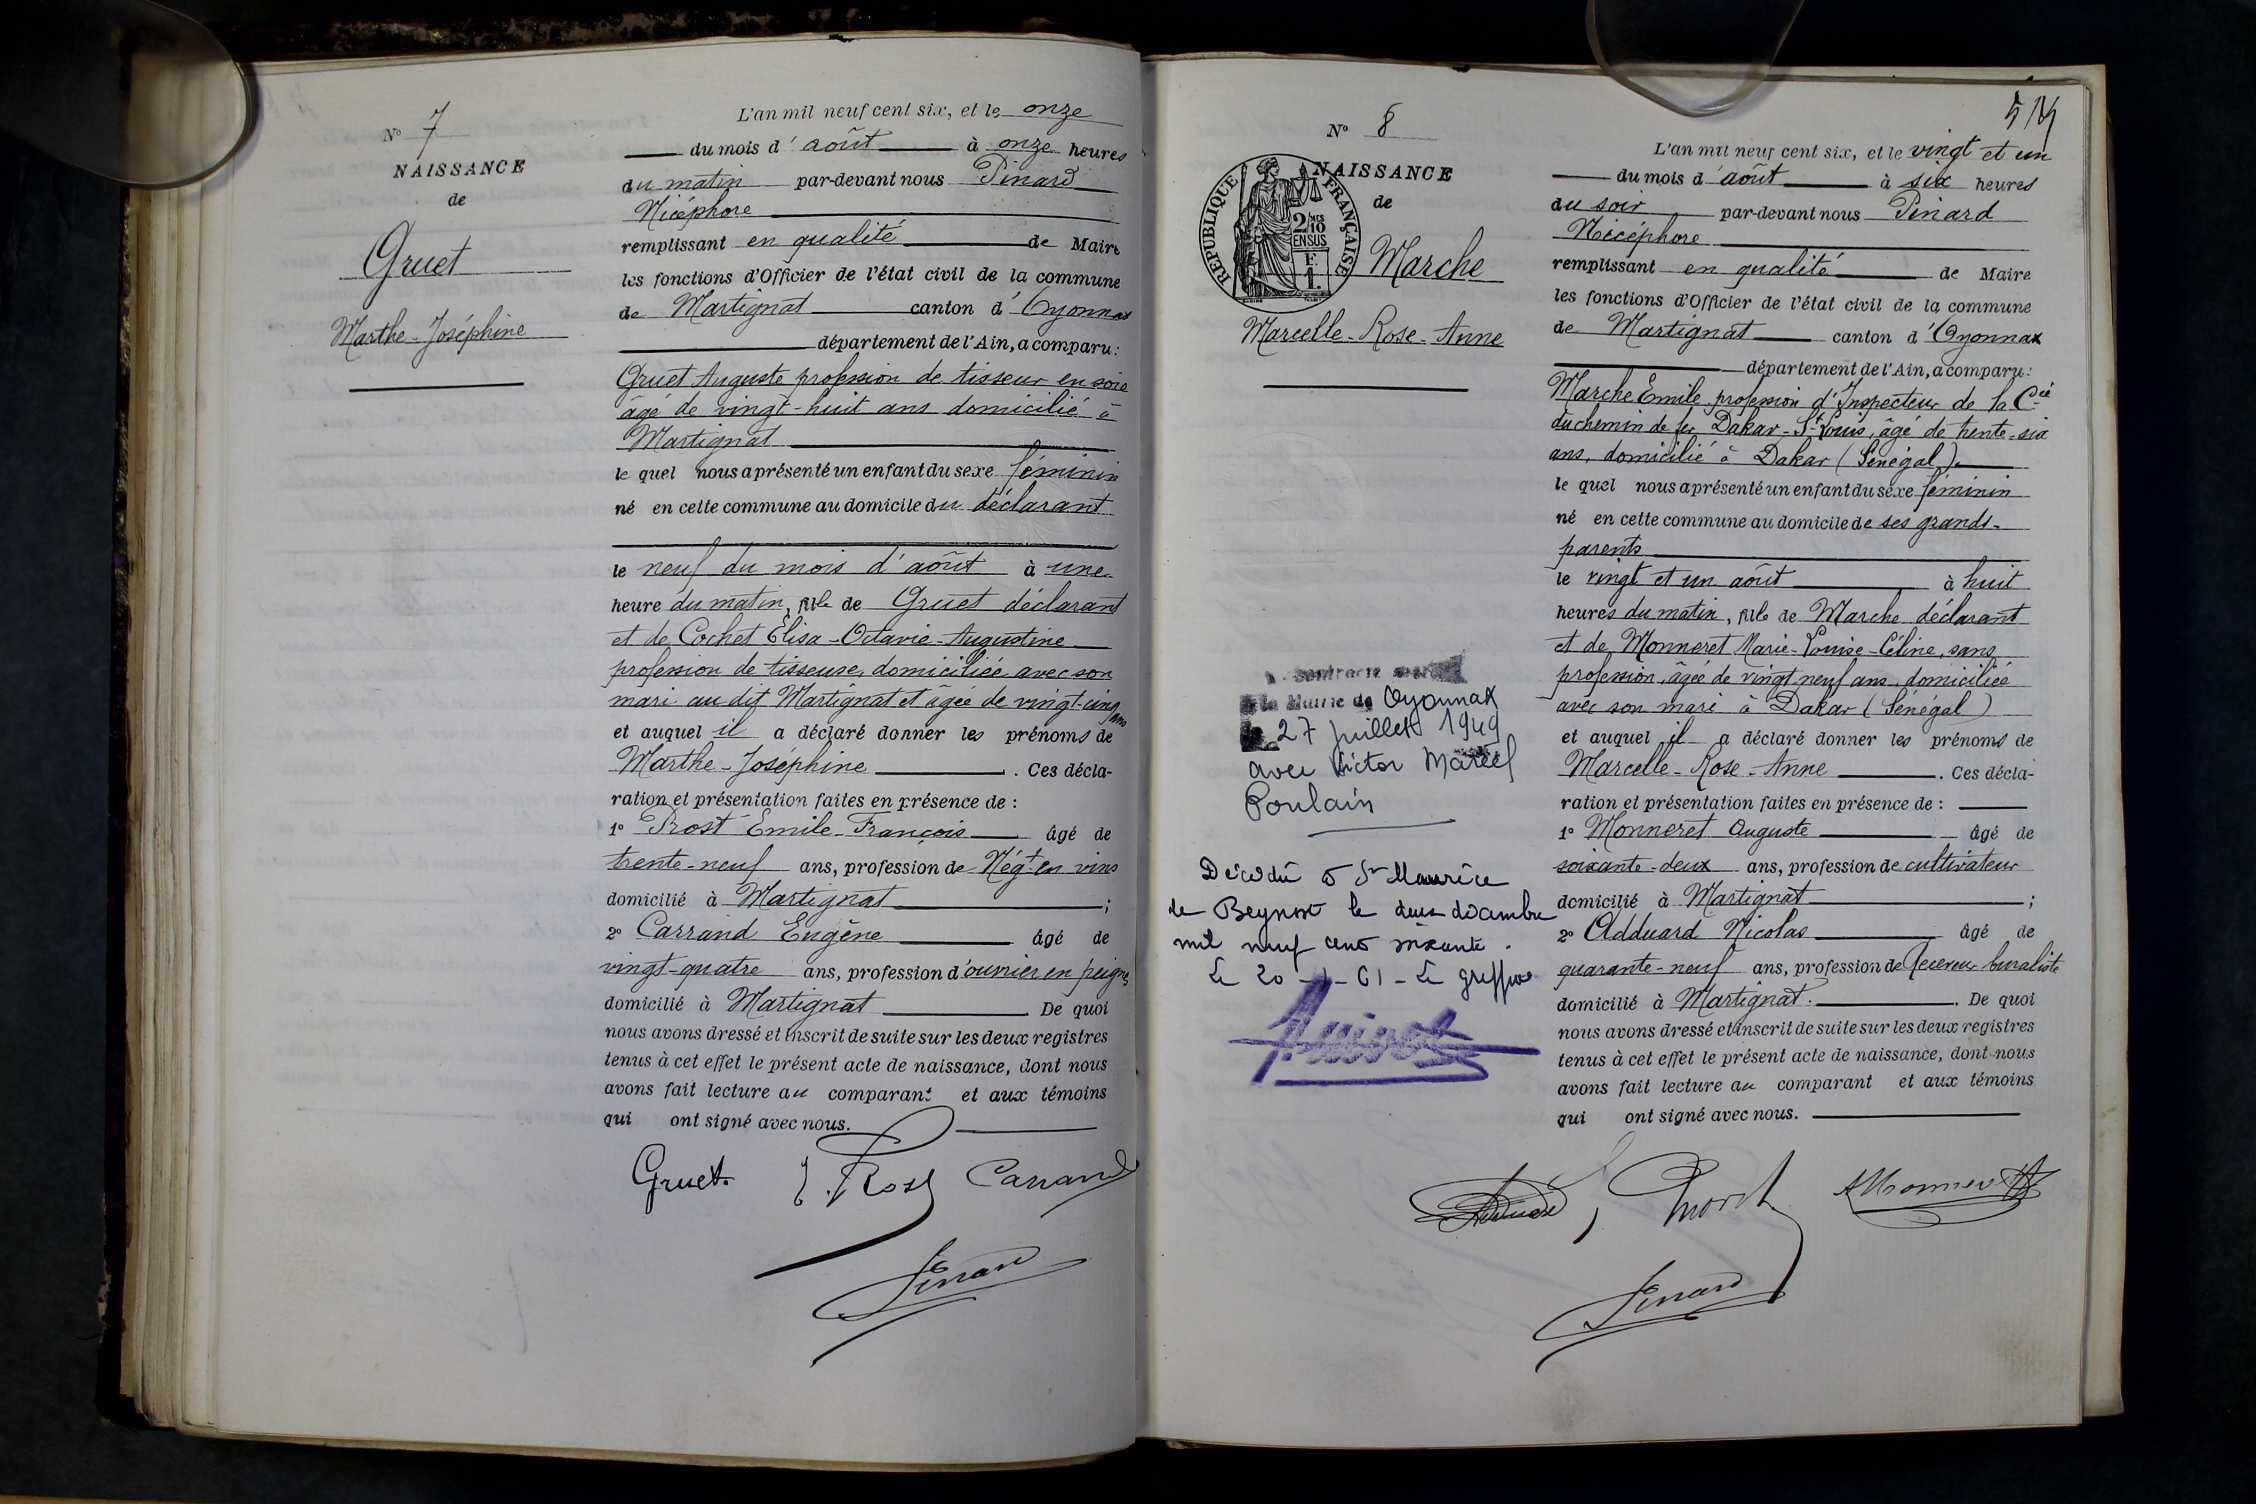 N° 7
NAISSANCE
de
Gruet
Marthe-Joséphine
L'an mil neuf cent six, et le onze
du mois d'août à onze heures
du matin par-devant nous Pinard
Nicéphore
remplissant en qualité de Maire
les fonctions d'Officier de l'état civil de la commune
de Martignat canton d'Oyonnax
département de l'Ain, a comparu:
Gruet Auguste profession de tisseur en soie
âgé de vingt-huit ans domicilié à
Martignat
le quel nous a présenté un enfant du sexe féminin
né en cette commune au domicile du déclarant
le neuf du mois d'août à une
heure du matin, fille de Gruet déclarant
et de Cochet Elisa-Octavie-Augustine
profession de tisseuse, domiciliée avec son
mari au dit Martignat et âgée de vingt-cinq ans
et auquel il a déclaré donner les prénoms de
Marthe-Joséphine. Ces décla-
ration et présentation faites en présence de :
1° Prost Emile-François âgé de
trente-neuf ans, profession de Négt en vins
domicilié à Martignat ;
2° Carrand Eugène âgé de
vingt-quatre ans, profession d'ouvrier en peignes
domicilié à Martignat De quoi
nous avons dressé et inscrit de suite sur les deux registres
tenus à cet effet le présent acte de naissance, dont nous
avons fait lecture au comparant et aux témoins
qui ont signé avec nous.
Gruet. E. Prost Carrand
Pinard
514
N° 8
NAISSANCE
de
RÉPUBLIQUE FRANÇAISE
2/10
EN SUS
F.
1.
Marche
Marcelle-Rose-Anne
contracté
à la Mairie de Oyonnax
le 27 juillet 1949
avec Victor Marcel
Poulain
Décédée à St Maurice
de Beynost le deux décembre
mil neuf cent soixante.
Le 20 - 1 - 61 - Le greffier
L'an mil neuf cent six, et le vingt et un
du mois d'août à six heures
du soir par-devant nous Pinard
Nicéphore
remplissant en qualité de Maire
les fonctions d'Officier de l'état civil de la commune
de Martignat canton d'Oyonnax
département de l'Ain, a comparu:
Marche Emile profession d'Inspecteur de la Cie
du chemin de fer Dakar-St Louis, âgé de trente-six
ans, domicilié à Dakar (Sénégal).
le quel nous a présenté un enfant du sexe féminin
né en cette commune au domicile de ses grands-
parents
le vingt et un août à huit
heures du matin, fille de Marche déclarant
et de Monneret Marie-Louise-Céline, sans
profession, âgée de vingt neuf ans, domiciliée
avec son mari à Dakar (Sénégal)
et auquel il a déclaré donner les prénoms de
Marcelle-Rose-Anne. Ces décla-
ration et présentation faites en présence de :
1° Monneret Auguste âgé de
soixante-deux ans, profession de cultivateur
domicilié à Martignat ;
2° Adduard Nicolas âgé de
quarante-neuf ans, profession de Receveur buraliste
domicilié à Martignat. De quoi
nous avons dressé et inscrit de suite sur les deux registres
tenus à cet effet le présent acte de naissance, dont nous
avons fait lecture au comparant et aux témoins
qui ont signé avec nous.
AMonneret
Pinard